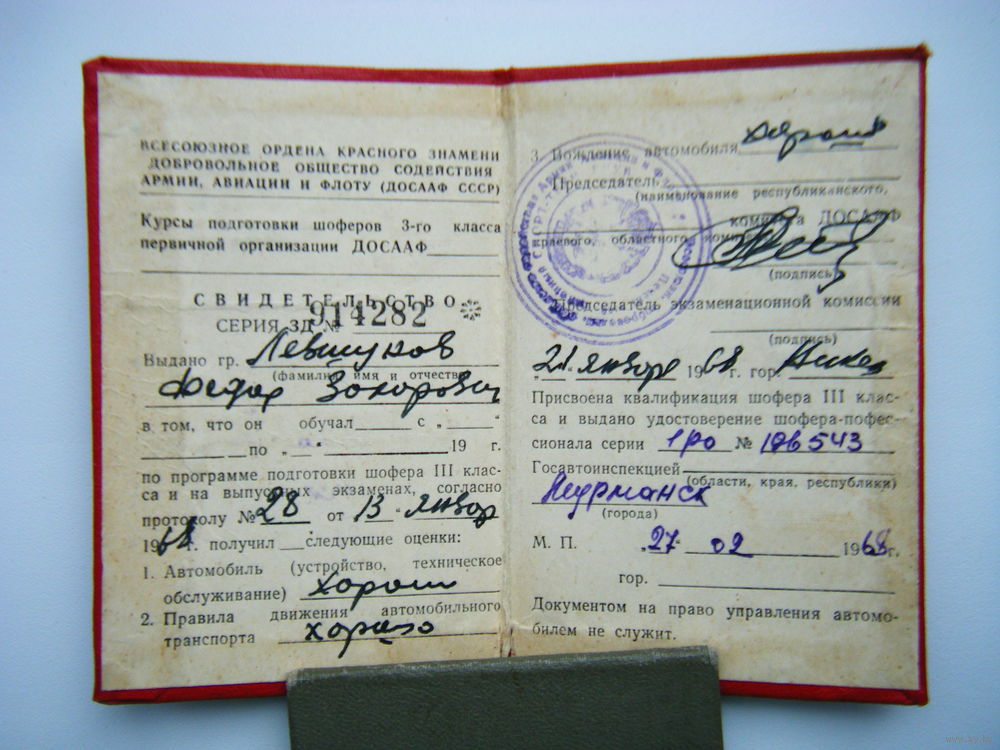 ВСЕСОЮЗНОЕ ОРДЕНА КРАСНОГО ЗНАМЕНИ
ДОБРОВОЛЬНОЕ ОБЩЕСТВО СОДЕЙСТВИЯ
АРМИИ, АВИАЦИИ И ФЛОТУ (ДОСААФ СССР)
Курсы подготовки шоферов 3-го класса
первичной организации ДОСААФ
СВИДЕТЕЛЬСТВО
СЕРИЯ ЗД № 914282
Выдано гр. Левшуков
(фамилия, имя и отчество)
Федор Зохорович
в том, что он обучал____ с „ “
по „ “ 19 г.
по программе подготовки шофера III клас-
са и на выпускных экзаменах, согласно
протоколу № 28 от 13 „ январ
1968 г. получил __ следующие оценки:
1. Автомобиль (устройство, техническое
обслуживание) хорошо
2. Правила движения автомобильного
транспорта хорошо
3. Вождение автомобиля хорошо
Председатель
(наименование республиканского,
комитета ДОСААФ
краевого, областного
(подпись)
Председатель экзаменационной комиссии
(подпись)
„21“ января 1968 г. гор.
Присвоена квалификация шофера III клас-
са и выдано удостоверение шофера-пофес-
сионала серии 1ро № 186543
Госавтоинспекцией
(области, края, республики)
Мурманск
(города)
М. П. „27“ 02 1968 г.
гор.
Документом на право управления автомо-
билем не служит.